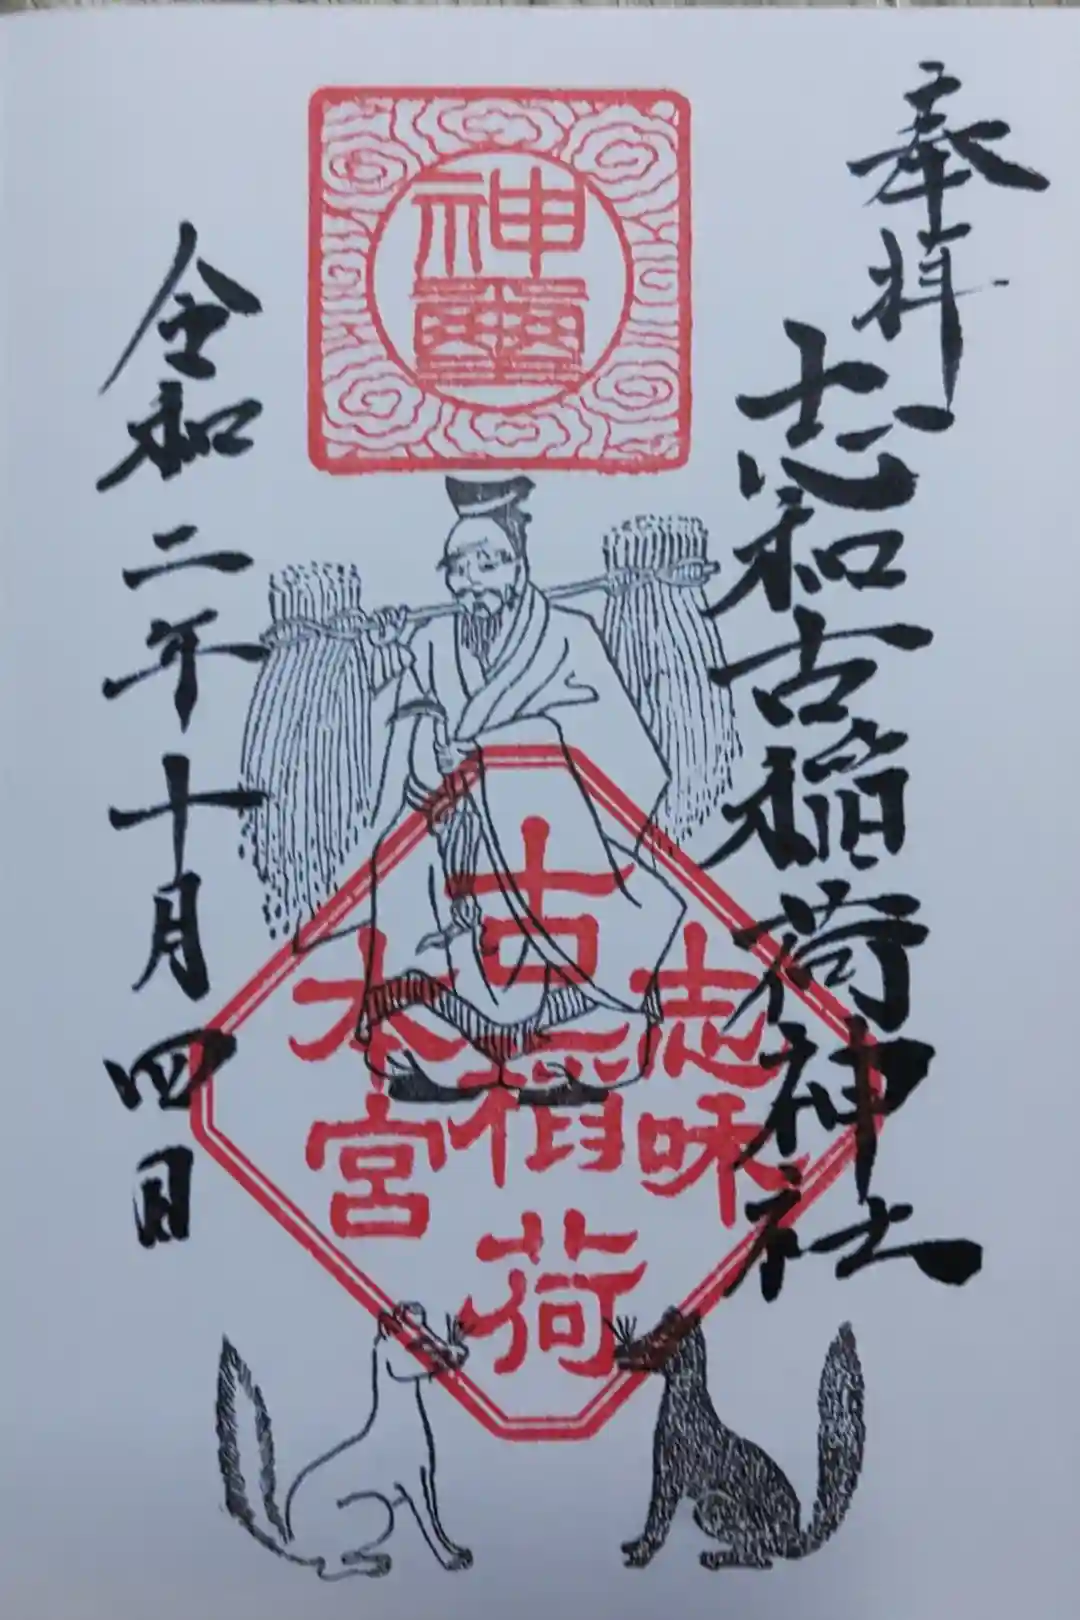 奉拝
志和古稲荷神社
神璽
志味
古稻荷
本宮
令和二年十月四日